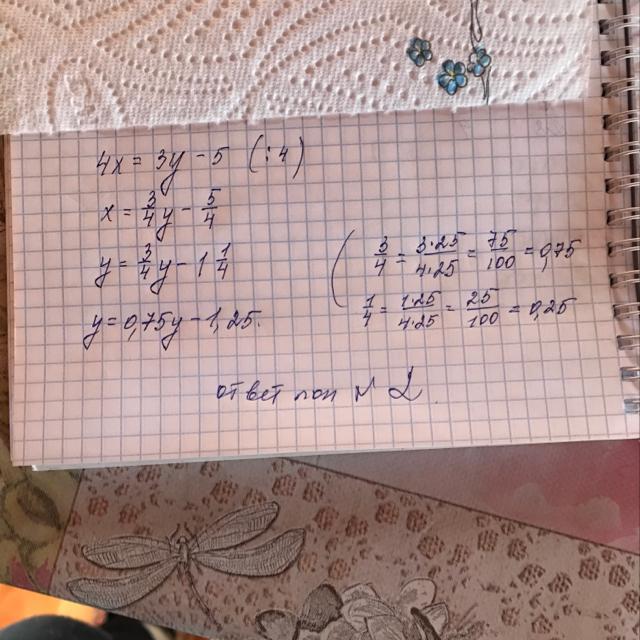 4x = 3y - 5 (:4)
x = 3/4 y - 5/4
y = 3/4 y - 1 1/4
y = 0,75y - 1,25.
( 3/4 = 3·25/4·25 = 75/100 = 0,75
1/4 = 1·25/4·25 = 25/100 = 0,25
ответ под № 2.